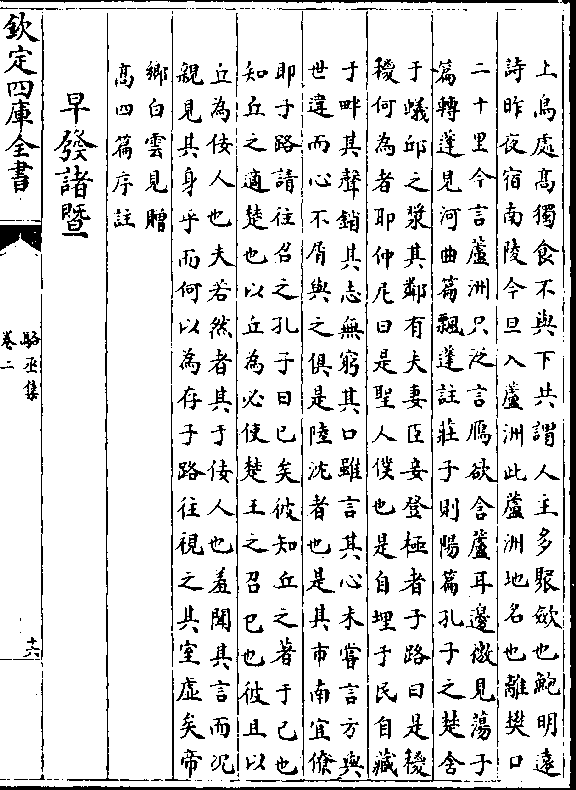 上鳥處高獨食不與下共謂人主多聚斂也鮑明遠
詩昨夜宿南陵今旦入蘆洲此蘆洲地名也離樊口
二十里今言蘆洲只泛言鴈欲含蘆耳邊徼見蕩子
篇轉蓬見河曲篇飄蓬註莊子則陽篇孔子之楚舍
于蟻邱之漿其鄰有夫妻臣妾登極者子路曰是稯
稯何為者耶仲尼曰是聖人僕也是自埋于民自藏
于畔其聲銷其志無窮其口雖言其心未嘗言方與
世違而心不屑與之俱是陸沈者也是其市南宜僚
即子路請往召之孔子曰已矣彼知丘之著于己也
知丘之適楚也以丘為必使楚王之召己也彼且以
丘為佞人也夫若然者其于佞人也羞聞其言而況
親見其身乎而何以為存子路往視之其室虛矣帝
鄉白雲見贈
高四篇序註
早發諸暨
欽定四庫全書
駱丞集
卷二
十六